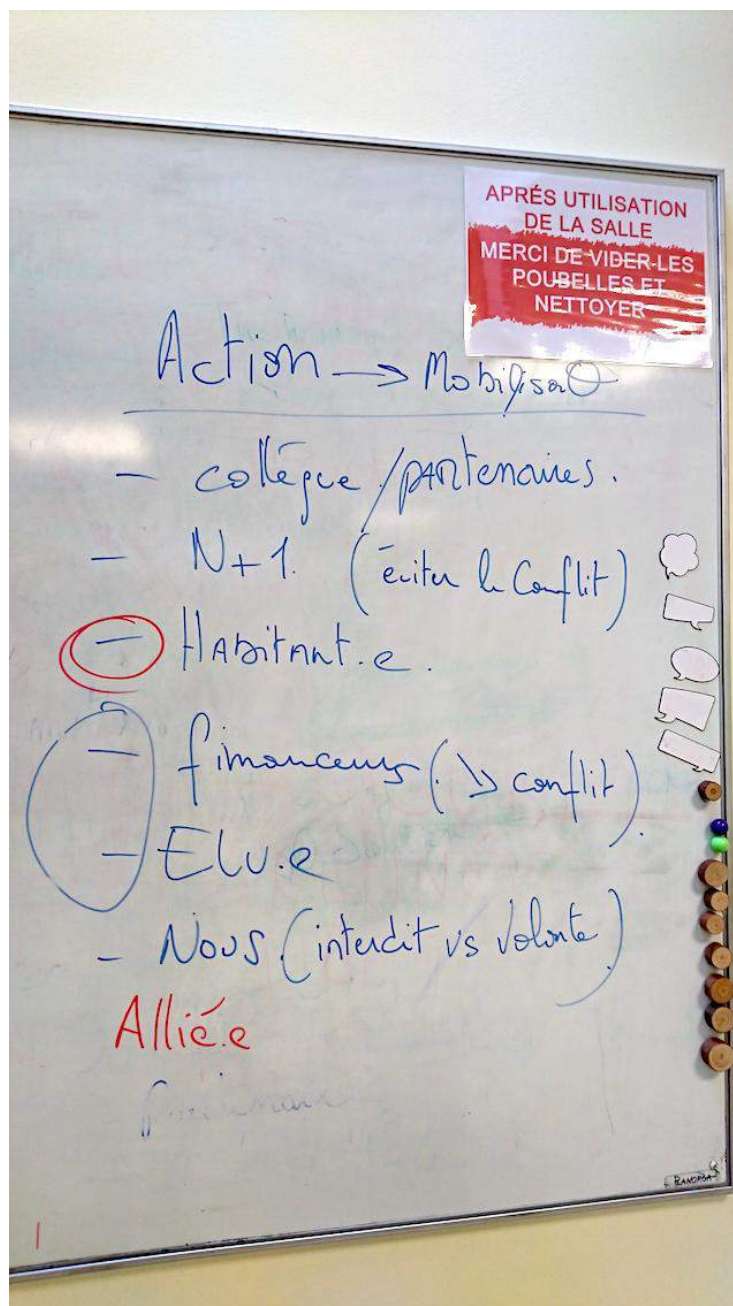 APRÉS UTILISATION
DE LA SALLE
MERCI DE VIDER LES
POUBELLES ET
NETTOYER
Action → Mobilisa
- collègue/partenaires.
- N+1. (éviter le Conflit)
- HAbitant.e.
- financeurs (↘ conflit).
- Elu.e
- Nous (interdit vs Volonté)
Allié.e